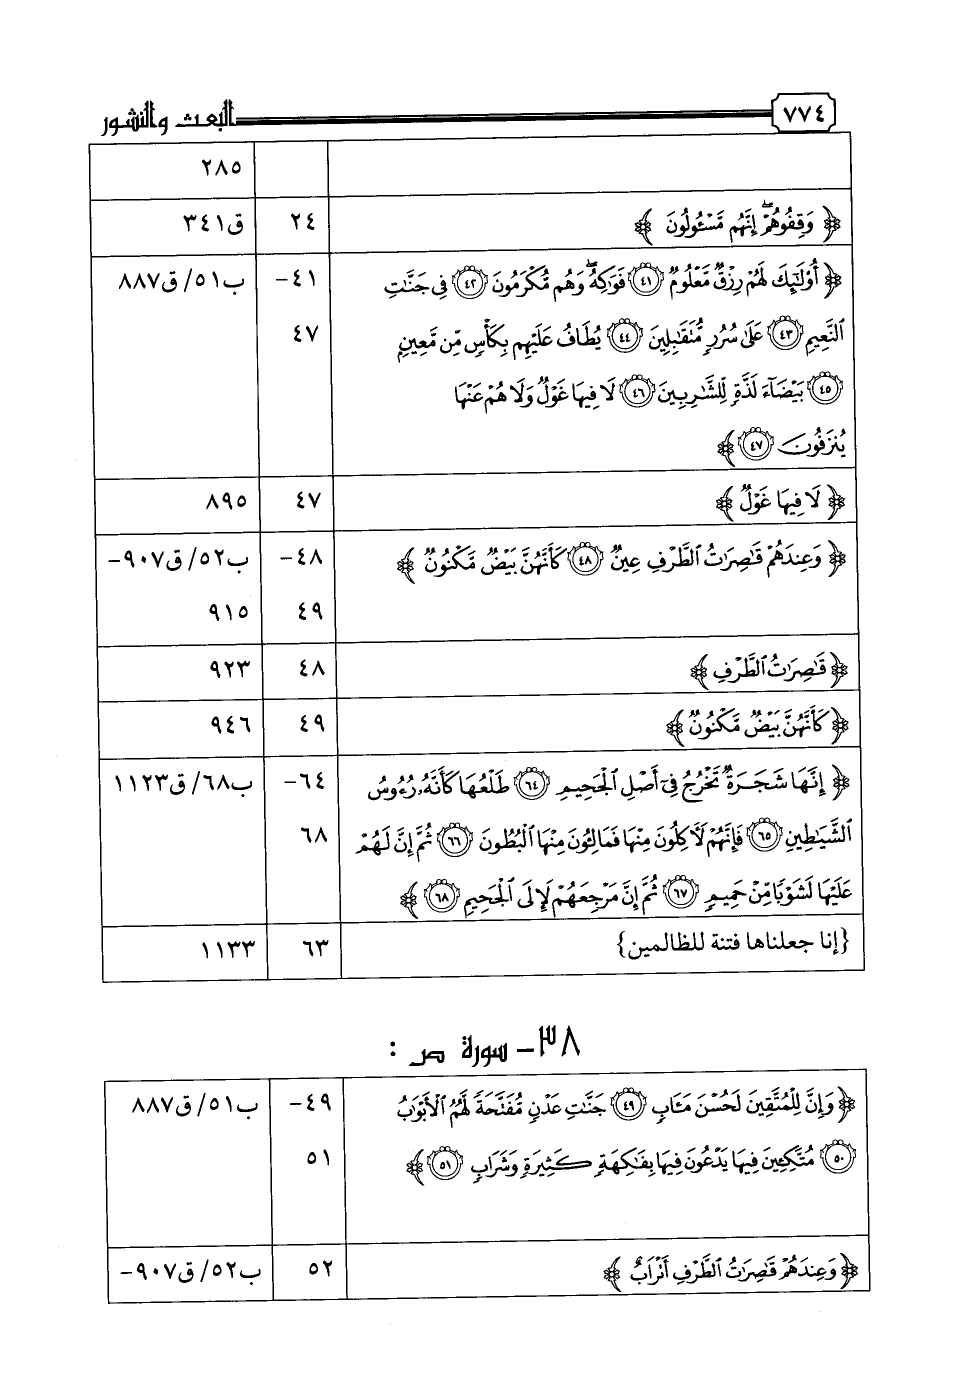 ٧٧٤ البعث والنشور
٢٨٥
﴿ وَقِفُوهُمْ ۖ إِنَّهُم مَّسْـُٔولُونَ ﴾ ٢٤ ق٣٤١
﴿ أُو۟لَـٰٓئِكَ لَهُمْ رِزْقٌ مَّعْلُومٌ ٤١ فَوَٰكِهُ ۖ وَهُم مُّكْرَمُونَ ٤٢ فِى جَنَّـٰتِ ٤١- ب٥١/ ق٨٨٧
ٱلنَّعِيمِ ٤٣ عَلَىٰ سُرُرٍ مُّتَقَـٰبِلِينَ ٤٤ يُطَافُ عَلَيْهِم بِكَأْسٍ مِّن مَّعِينٍ ٤٧
٤٥ بَيْضَآءَ لَذَّةٍ لِّلشَّـٰرِبِينَ ٤٦ لَا فِيهَا غَوْلٌ وَلَا هُمْ عَنْهَا
يُنزَفُونَ ٤٧ ﴾
﴿ لَا فِيهَا غَوْلٌ ﴾ ٤٧ ٨٩٥
﴿ وَعِندَهُمْ قَـٰصِرَٰتُ ٱلطَّرْفِ عِينٌ ٤٨ كَأَنَّهُنَّ بَيْضٌ مَّكْنُونٌ ﴾ ٤٨- ب٥٢/ ق٩٠٧-
٤٩ ٩١٥
﴿ قَـٰصِرَٰتُ ٱلطَّرْفِ ﴾ ٤٨ ٩٢٣
﴿ كَأَنَّهُنَّ بَيْضٌ مَّكْنُونٌ ﴾ ٤٩ ٩٤٦
﴿ إِنَّهَا شَجَرَةٌ تَخْرُجُ فِىٓ أَصْلِ ٱلْجَحِيمِ ٦٤ طَلْعُهَا كَأَنَّهُۥ رُءُوسُ ٦٤- ب٦٨/ ق١١٢٣
ٱلشَّيَـٰطِينِ ٦٥ فَإِنَّهُمْ لَـَٔاكِلُونَ مِنْهَا فَمَالِـُٔونَ مِنْهَا ٱلْبُطُونَ ٦٦ ثُمَّ إِنَّ لَهُمْ ٦٨
عَلَيْهَا لَشَوْبًا مِّنْ حَمِيمٍ ٦٧ ثُمَّ إِنَّ مَرْجِعَهُمْ لَإِلَى ٱلْجَحِيمِ ٦٨ ﴾
{إنا جعلناها فتنة للظالمين} ٦٣ ١١٣٣
٣٨- سورة ص :
﴿ وَإِنَّ لِلْمُتَّقِينَ لَحُسْنَ مَـَٔابٍ ٤٩ جَنَّـٰتِ عَدْنٍ مُّفَتَّحَةً لَّهُمُ ٱلْأَبْوَٰبُ ٤٩- ب٥١/ ق٨٨٧
٥٠ مُتَّكِـِٔينَ فِيهَا يَدْعُونَ فِيهَا بِفَـٰكِهَةٍ كَثِيرَةٍ وَشَرَابٍ ٥١ ﴾ ٥١
﴿ وَعِندَهُمْ قَـٰصِرَٰتُ ٱلطَّرْفِ أَتْرَابٌ ﴾ ٥٢ ب٥٢/ ق٩٠٧-